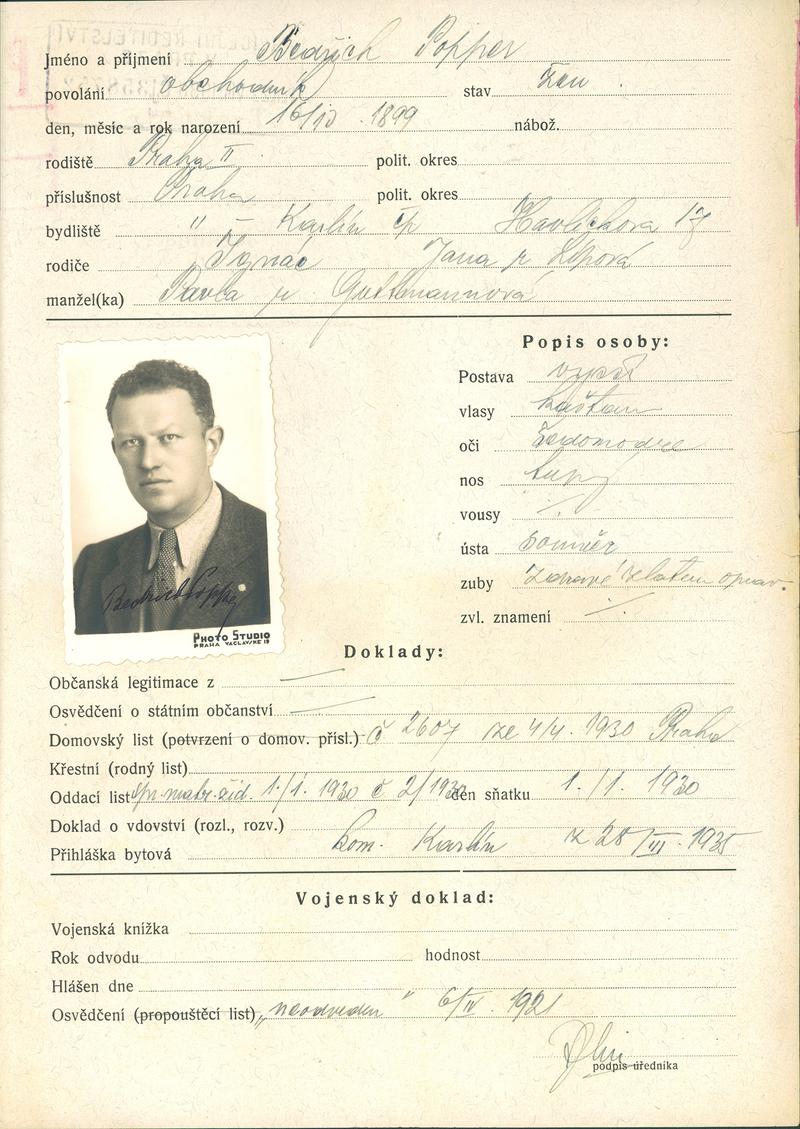 Jméno a příjmení Bedřich Popper
povolání obchodník stav žen.
den, měsíc a rok narození 1899 nábož.
rodiště Praha II polit. okres
příslušnost Praha polit. okres
bydliště " – Karlín čp Havlíčkova
rodiče Ignác Jana r
manžel(ka) Pavla r. Guttmannová
Popis osoby:
Postava
vlasy kaštan
oči šedomodré
nos tupý
vousy ./.
ústa souměr
zuby zdravé zlatem oprav.
zvl. znamení ./.
Bedřich Popper
PHOTO STUDIO
PRAHA VÁCLAVSKÉ 19
Doklady:
Občanská legitimace z —
Osvědčení o státním občanství —
Domovský list (potvrzení o domov. přísl.) č 2607 ze 4/4. 1930 Praha
Křestní (rodný list)
Oddací list matr. žid. 1./1. 1930 č 2/1930 den sňatku 1./1. 1930
Doklad o vdovství (rozl., rozv.)
Přihláška bytová kom. Karlín z 28/III. 1935
Vojenský doklad:
Vojenská knížka
Rok odvodu hodnost
Hlášen dne
Osvědčení (propouštěcí list) „neodveden" 6/IV. 1921
podpis úředníka